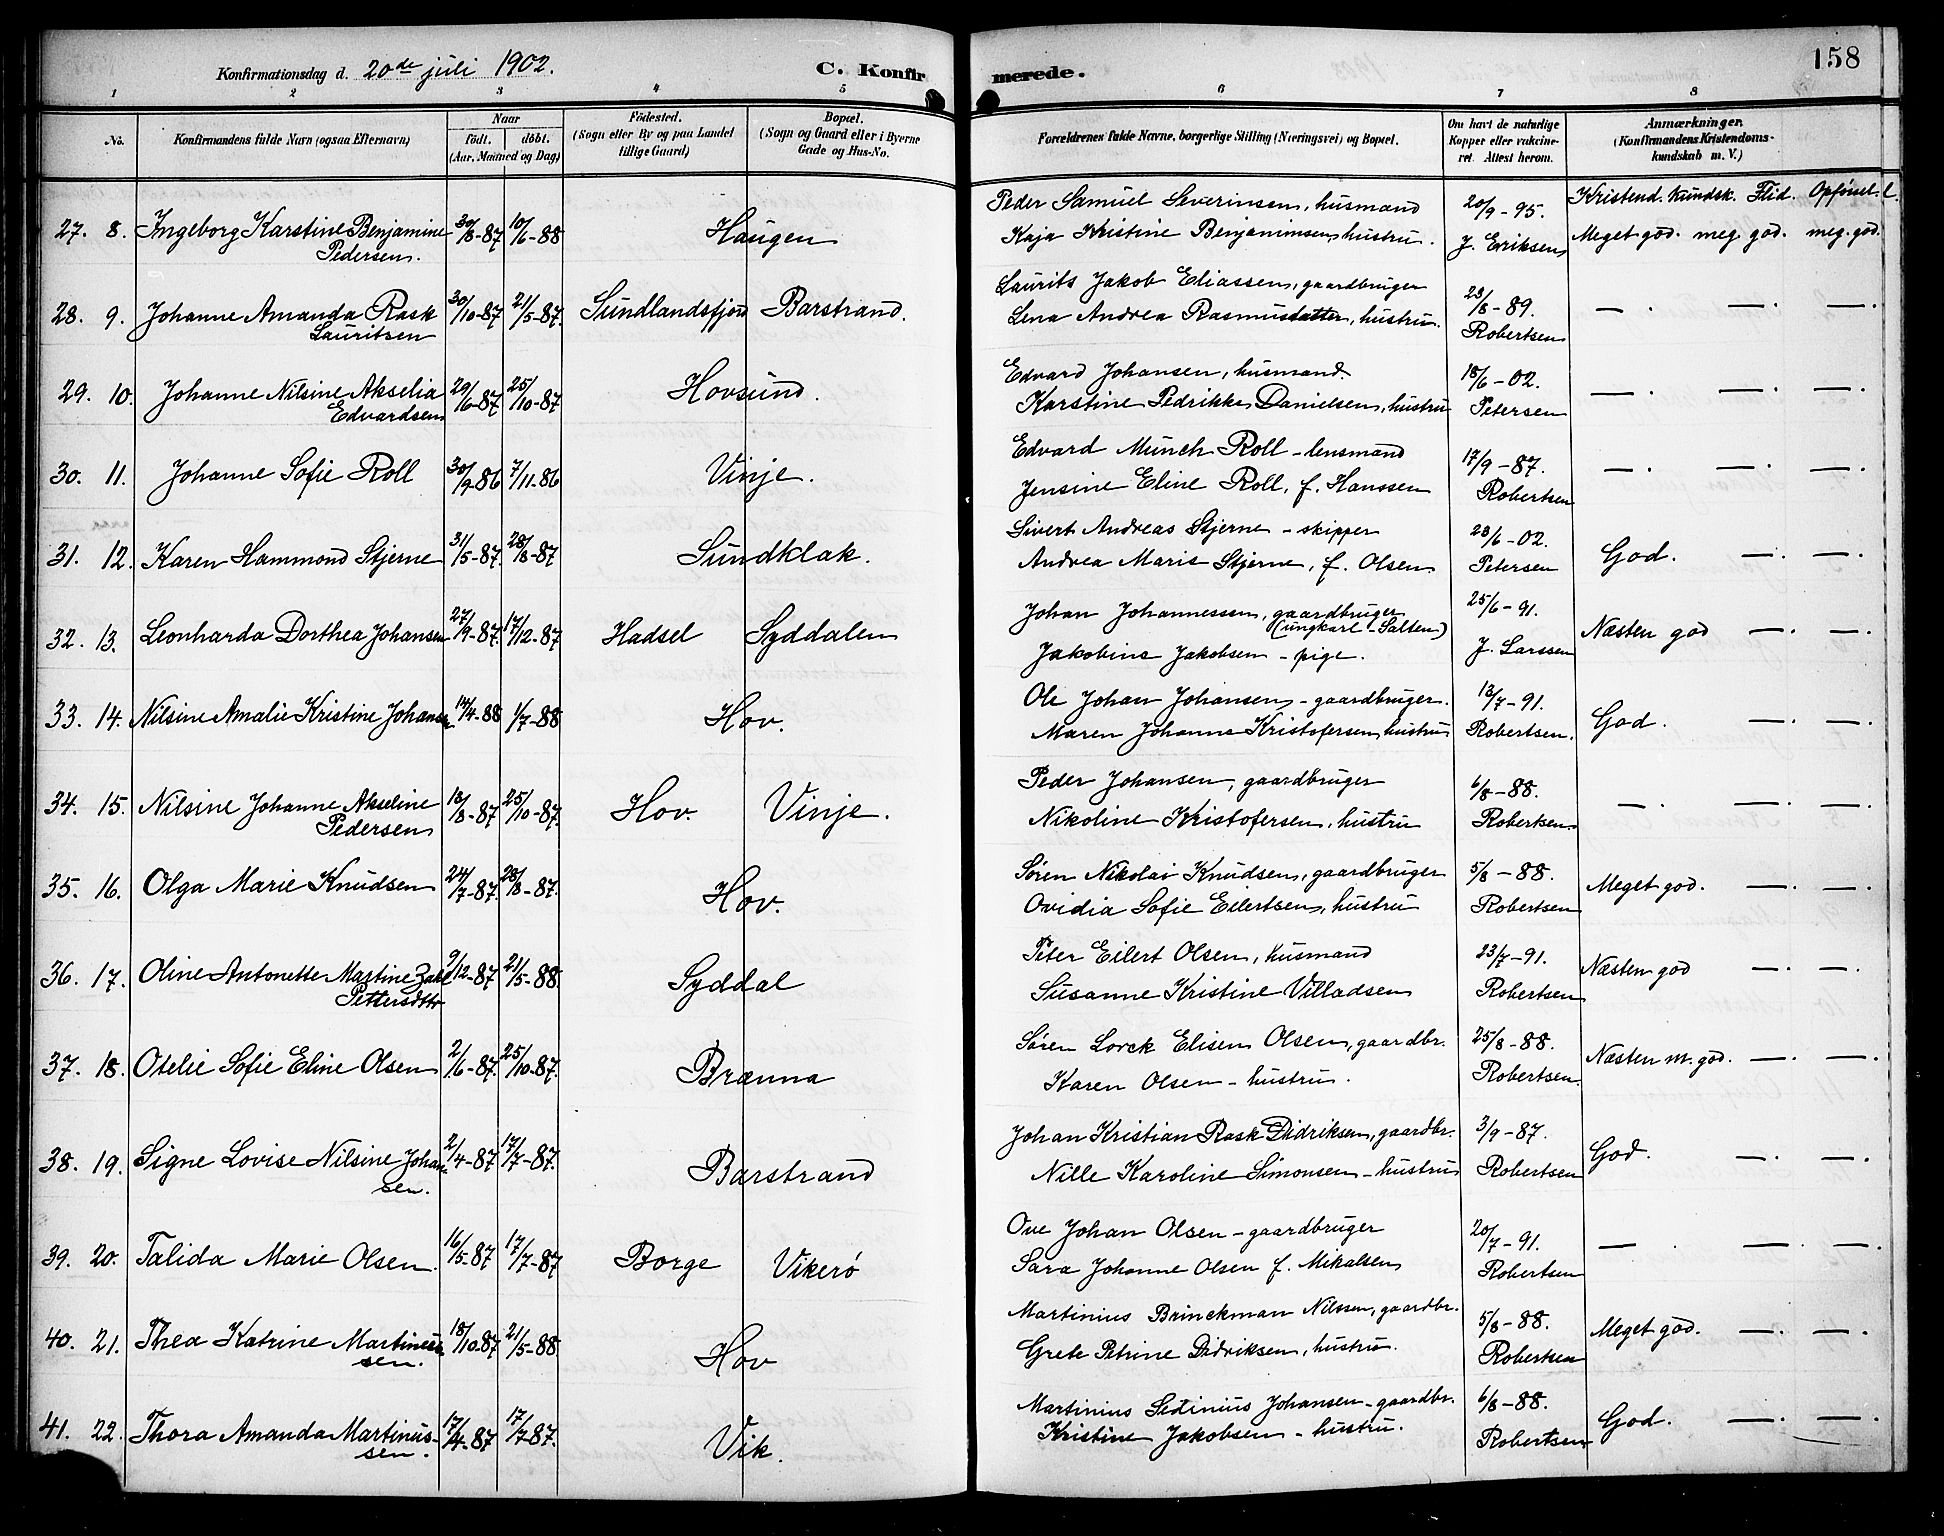 158
Konfirmationsdag d. 20de juli 1902. C. Konfirmerede.
1 2 3 4 5 6 7 8
No. Konfirmandens fulde Navn (ogsaa Efternavn) Naar födt. döbt. (Aar, Maaned og Dag) Födested. (Sogn eller By og paa Landet tillige Gaard) Bopæl. (Sogn og Gaard eller i Byerne Gade og Hus-No. Forældrenes fulde Navne, borgerlige Stilling (Næringsvei) og Bopæl. Om havt de naturlige Kopper eller vakcineret Attest herom. Anmærkninger. (Konfirmandens Kristendomskundskab m. V.)
Peder Samuel Severinsen, husmand 20/9-95. Kristend. Kundsk. Flid. Opførsel.
27. 8. Ingeborg Karstine Benjamine 30/8-87 10/6-88 Haugen Kaja Kristine Benjaminsen, hustru. J. Eriksen Meget god. meg. god. meg. god.
Pedersen.
Laurits Jakob Eliassen, gaardbruger 23/8-89.
28. 9. Johanne Amanda Rask 30/10-87 21/5-87. Sundlandsfjord Barstrand. Lena Andrea Rasmusdatter, hustru. Robertsen — . — . — .
Lauritsen
Edvard Johansen, husmand. 18/6-02.
29. 10. Johanne Nilsine Akselia 29/6-87 25/10-87 Hovsund. Karstine Pedrikke Danielsen, hustru Petersen — . — . — .
Edvardsen
Edvard Münch Roll - lensmand 17/9-87.
30. 11. Johanne Sofie Roll 30/9-86 7/11-86 Vinje. Jensine Eline Roll, f. Hanssen Robertsen — . — . — .
Sivert Andreas Stjerne - skipper 23/6-02.
31. 12. Karen Hammond Stjerne 31/5-87. 28/8-87 Sundklak. Andrea Marie Stjerne, f. Olsen. Petersen God. — . — .
Johan Johannessen, gaardbruger 25/6-91.
(ungkarl - Salten)
32. 13. Leonharda Dorthea Johansen 27/9-87. 17/12-87 Hadsel Syddalen Jakobine Jakobsen - pige. J. Larssen Næsten god — . — .
Ole Johan Johansen - gaardbruger. 13/7-91.
33. 14. Nilsine Amalie Kristine Johansen 14/4-88 1/7-88 Hov. Maren Johanne Kristofersen, hustru Robertsen. God. — . — .
Peder Johansen, gaardbruger 6/8-88.
34. 15. Nilsine Johanne Akseline 13/8-87 25/10-87. Hov. Vinje. Nikoline Kristofersen, hustru Robertsen. — . — . — .
Pedersen
Søren Nikolai Knudsen, gaardbruger 5/8-88.
35. 16. Olga Marie Knudsen 24/7-87. 28/8-87. Hov. Ovidia Sofie Eilertsen, hustru Robertsen Meget god. — . — .
Peter Eilert Olsen, husmand 23/7-91.
36. 17. Oline Antonette Martine Zahl 9/12-87 21/5-88 Syddal Susanne Kristine Villadsen Robertsen Næsten god — . — .
Pettersdtr
Søren Lorck Elisen Olsen, gaardbr. 25/8-88.
37. 18. Otelie Sofie Eline Olsen 2/6-87. 25/10-87. Brænna Karen Olsen - hustru. Robertsen. Næsten m. god. — . — .
Johan Kristian Rask Didriksen, gaardbr. 3/9-87.
38. 19. Signe Lovise Nilsine Johan- 2/4-87 17/7-87. Barstrand Nille Karoline Simonsen - hustru Robertsen God. — . — .
sen.
Ove Johan Olsen - gaardbruger 20/7-91.
39. 20. Talida Marie Olsen. 16/5-87 17/7-87 Borge Vikerø Sara Johanne Olsen f. Mikalsen Robertsen — . — . — .
Martinius Brinckman Nilssen, gaardbr. 5/8-88.
40. 21. Thea Katrine Martinus- 18/10-87 21/5-88 Hov Grete Petrine Didriksen, hustru. Robertsen Meget god. — . — .
sen.
Martinius Sedinius Johansen - gaardbr. 6/8-88.
41. 22. Thora Amanda Martinus- 17/4-87 17/7-87. Vik. Kristine Jakobsen - hustru. Robertsen God. — . — .
sen.